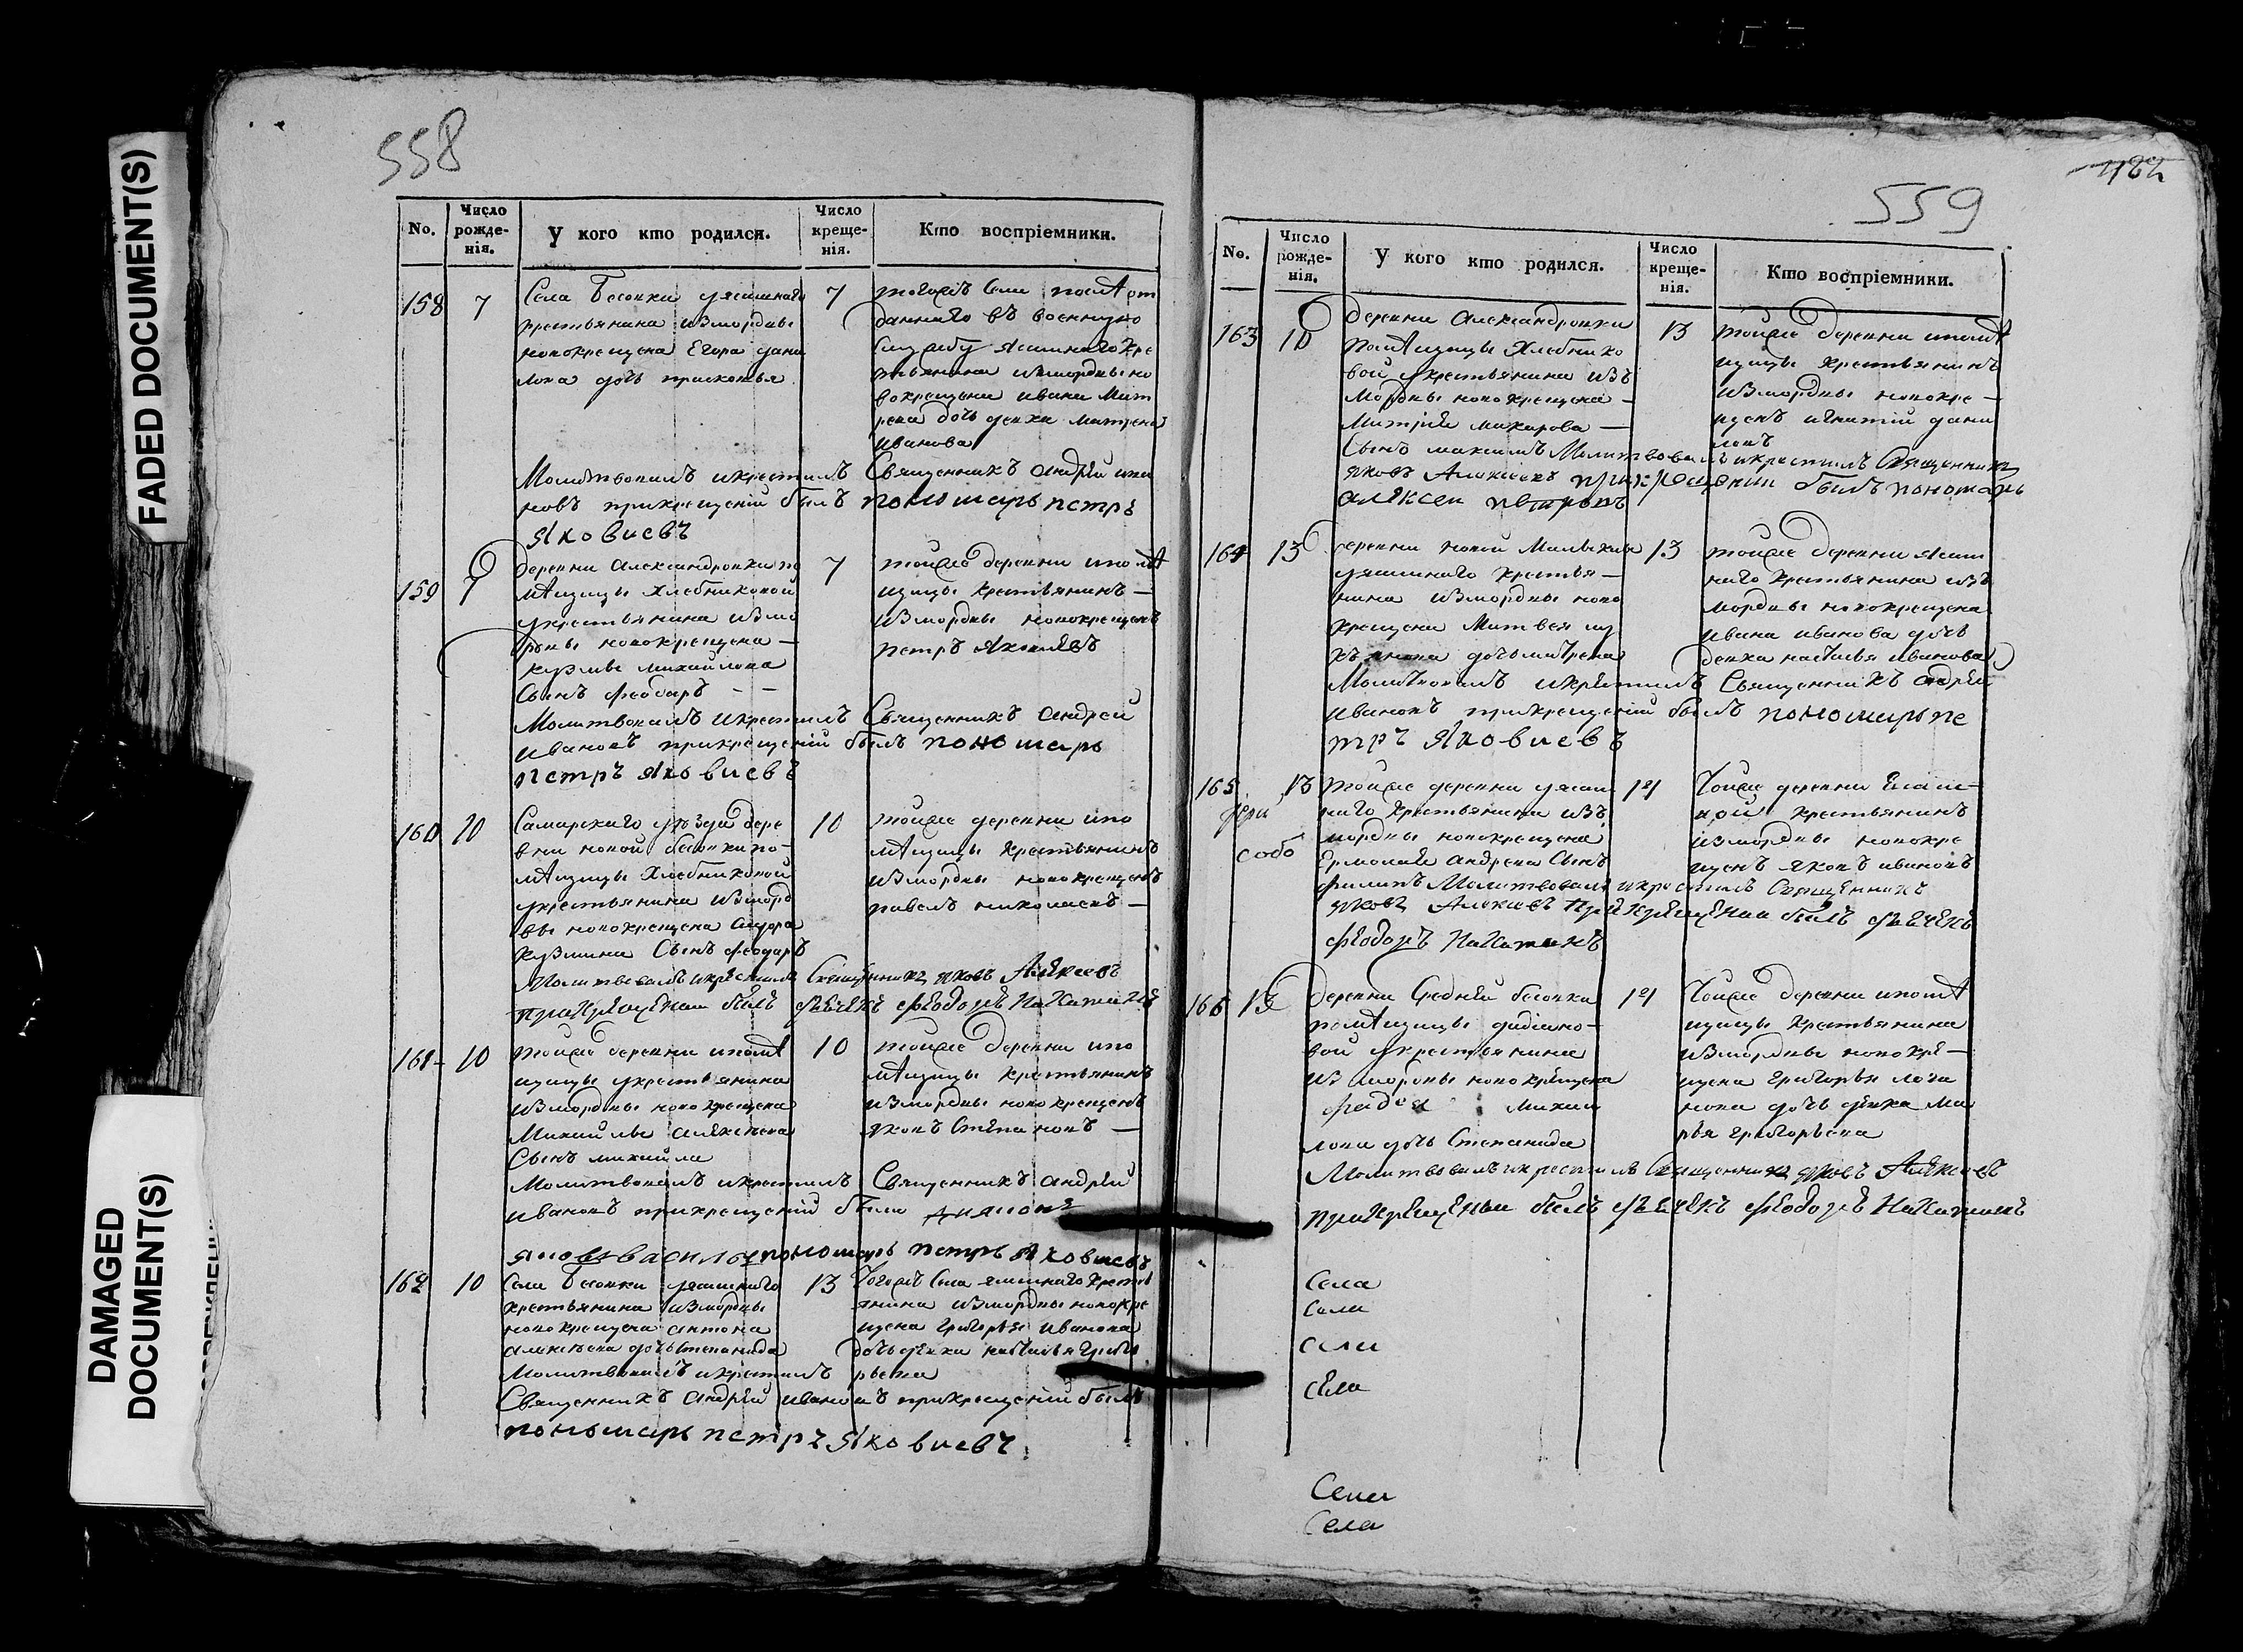 FADED DOCUMENT(S)
DAMAGED
DOCUMENT(S)
558
No.
Число рожде-нія.
У кого кто родился.
Число креще-нія.
Кто воспріемники.
158 7
Села Бесовки уясашнаго
крестьянина измордвы
новокрещена Егора дани
лова дочь прасковья
7
тогожъ Села послѣ от
даннаго въ военную
Службу ясашнаго кре
стьянина измордвы но
вокрещена ивана Мит
рева дочь девка матрена
иванова
Молитвовалъ икрестилъ Священникъ андрей ива
новъ прикрещеніи былъ пономарь петръ
Яковлевъ
159 7
деревни александровки по
мѣщицы Хлебниковой
укрестьянина измо
рдвы новокрещена —
кузмы михайлова
Сынъ феодаръ - -
7
тойже деревни ипомѣ
щицы крестьянинъ —
измордвы новокрещенъ
петръ яковлевъ
Молитвовалъ икрестилъ Священникъ андрей
ивановъ прикрещеніи былъ пономарь
петръ яковлевъ
160 10
Самарскаго уѣзда дере
вни новой бесовки по-
мѣщицы Хлебниковой
укрестьянина изморд
вы новокрещена
кузмина Сынъ феодаръ
10
тойже деревни ипо
мѣщицы крестьянинъ
измордвы новокрещенъ
павелъ николаевъ —
Молитвовалъ икрестилъ Священникъ яковъ Алексеевъ
прикрещении былъ феодоръ Никитинъ
161 - 10
тойже деревни ипомѣ
щицы укрестьянина
измордвы новокрещена
Михайлы алексеева
Сынъ михайла
10
тойже деревни ипо
мѣщицы крестьянинъ
измордвы новокрещенъ
яковъ Степановъ —
Молитвовалъ икрестилъ Священникъ андрей
ивановъ прикрещеніи были диаконъ
пономарь петръ Яковлевъ
162 10
Села Бесовки уясашнаго
крестьянина измордвы
новокрещена антона
алексеева дочь Степанида
13
Тогожъ Села ясашнаго крест
янина измордвы новокре
щена григорья иванова
дочь девка настасья григо
рьева
Молитвовалъ икрестилъ
Священникъ андрей ивановъ прикрещеніи былъ
пономарь петръ Яковлевъ
559
No.
Число рожде-нія.
У кого кто родился.
Число креще-нія.
Кто воспріемники.
163 10
деревни александровки
помѣщицы Хлебнико
вой укрестьянина изъ
мордвы новокрещена —
Митрія макарова —
Сынъ максимъ
13
тойже деревни ипомѣ
щицы крестьянинъ
измордвы новокре —
щенъ игнатій дани
ловъ
Молитвовалъ икрестилъ Священникъ
яковъ Алексеевъ прикрещении былъ пономарь
алексеи петровъ
164 13
деревни новой Малыклы
уясашнаго крестья —
нина измордвы ново
крещена Матвея лу
кьянова дочь матрена
13
тойже деревни ясаш
наго крестьянина изъ
мордвы новокрещена
ивана иванова дочь
девка настасья иванова
Молитвовалъ икрестилъ Священникъ андрей
ивановъ прикрещеніи былъ пономарь пе
тръ Яковлевъ
165 13
собо
тойже деревни уясаш
наго крестьянина изъ
мордвы новокрещена
Ермолая андреева Сынъ
филипъ
14
Тойже деревни
крестьянинъ
измордвы новокре
щенъ яковъ ивановъ
Молитвовалъ икрестилъ Священникъ
яковъ Алексеевъ прикрещении былъ
феодоръ Никитинъ
166 13
деревни Средней бесовки
помѣщицы
вой укрестьянина
из мордвы новокрещена
фадея михаи
лова дочь Степанида
14
Тойже деревни ипомѣ
щицы крестьянина
измордвы новокре —
щена григорья
нова дочь девка ма
рья григорьева
Молитвовалъ икрестилъ Священникъ яковъ Алексеевъ
прикрещении былъ феодоръ Никитинъ
Села
Села
села
села
Села
Села